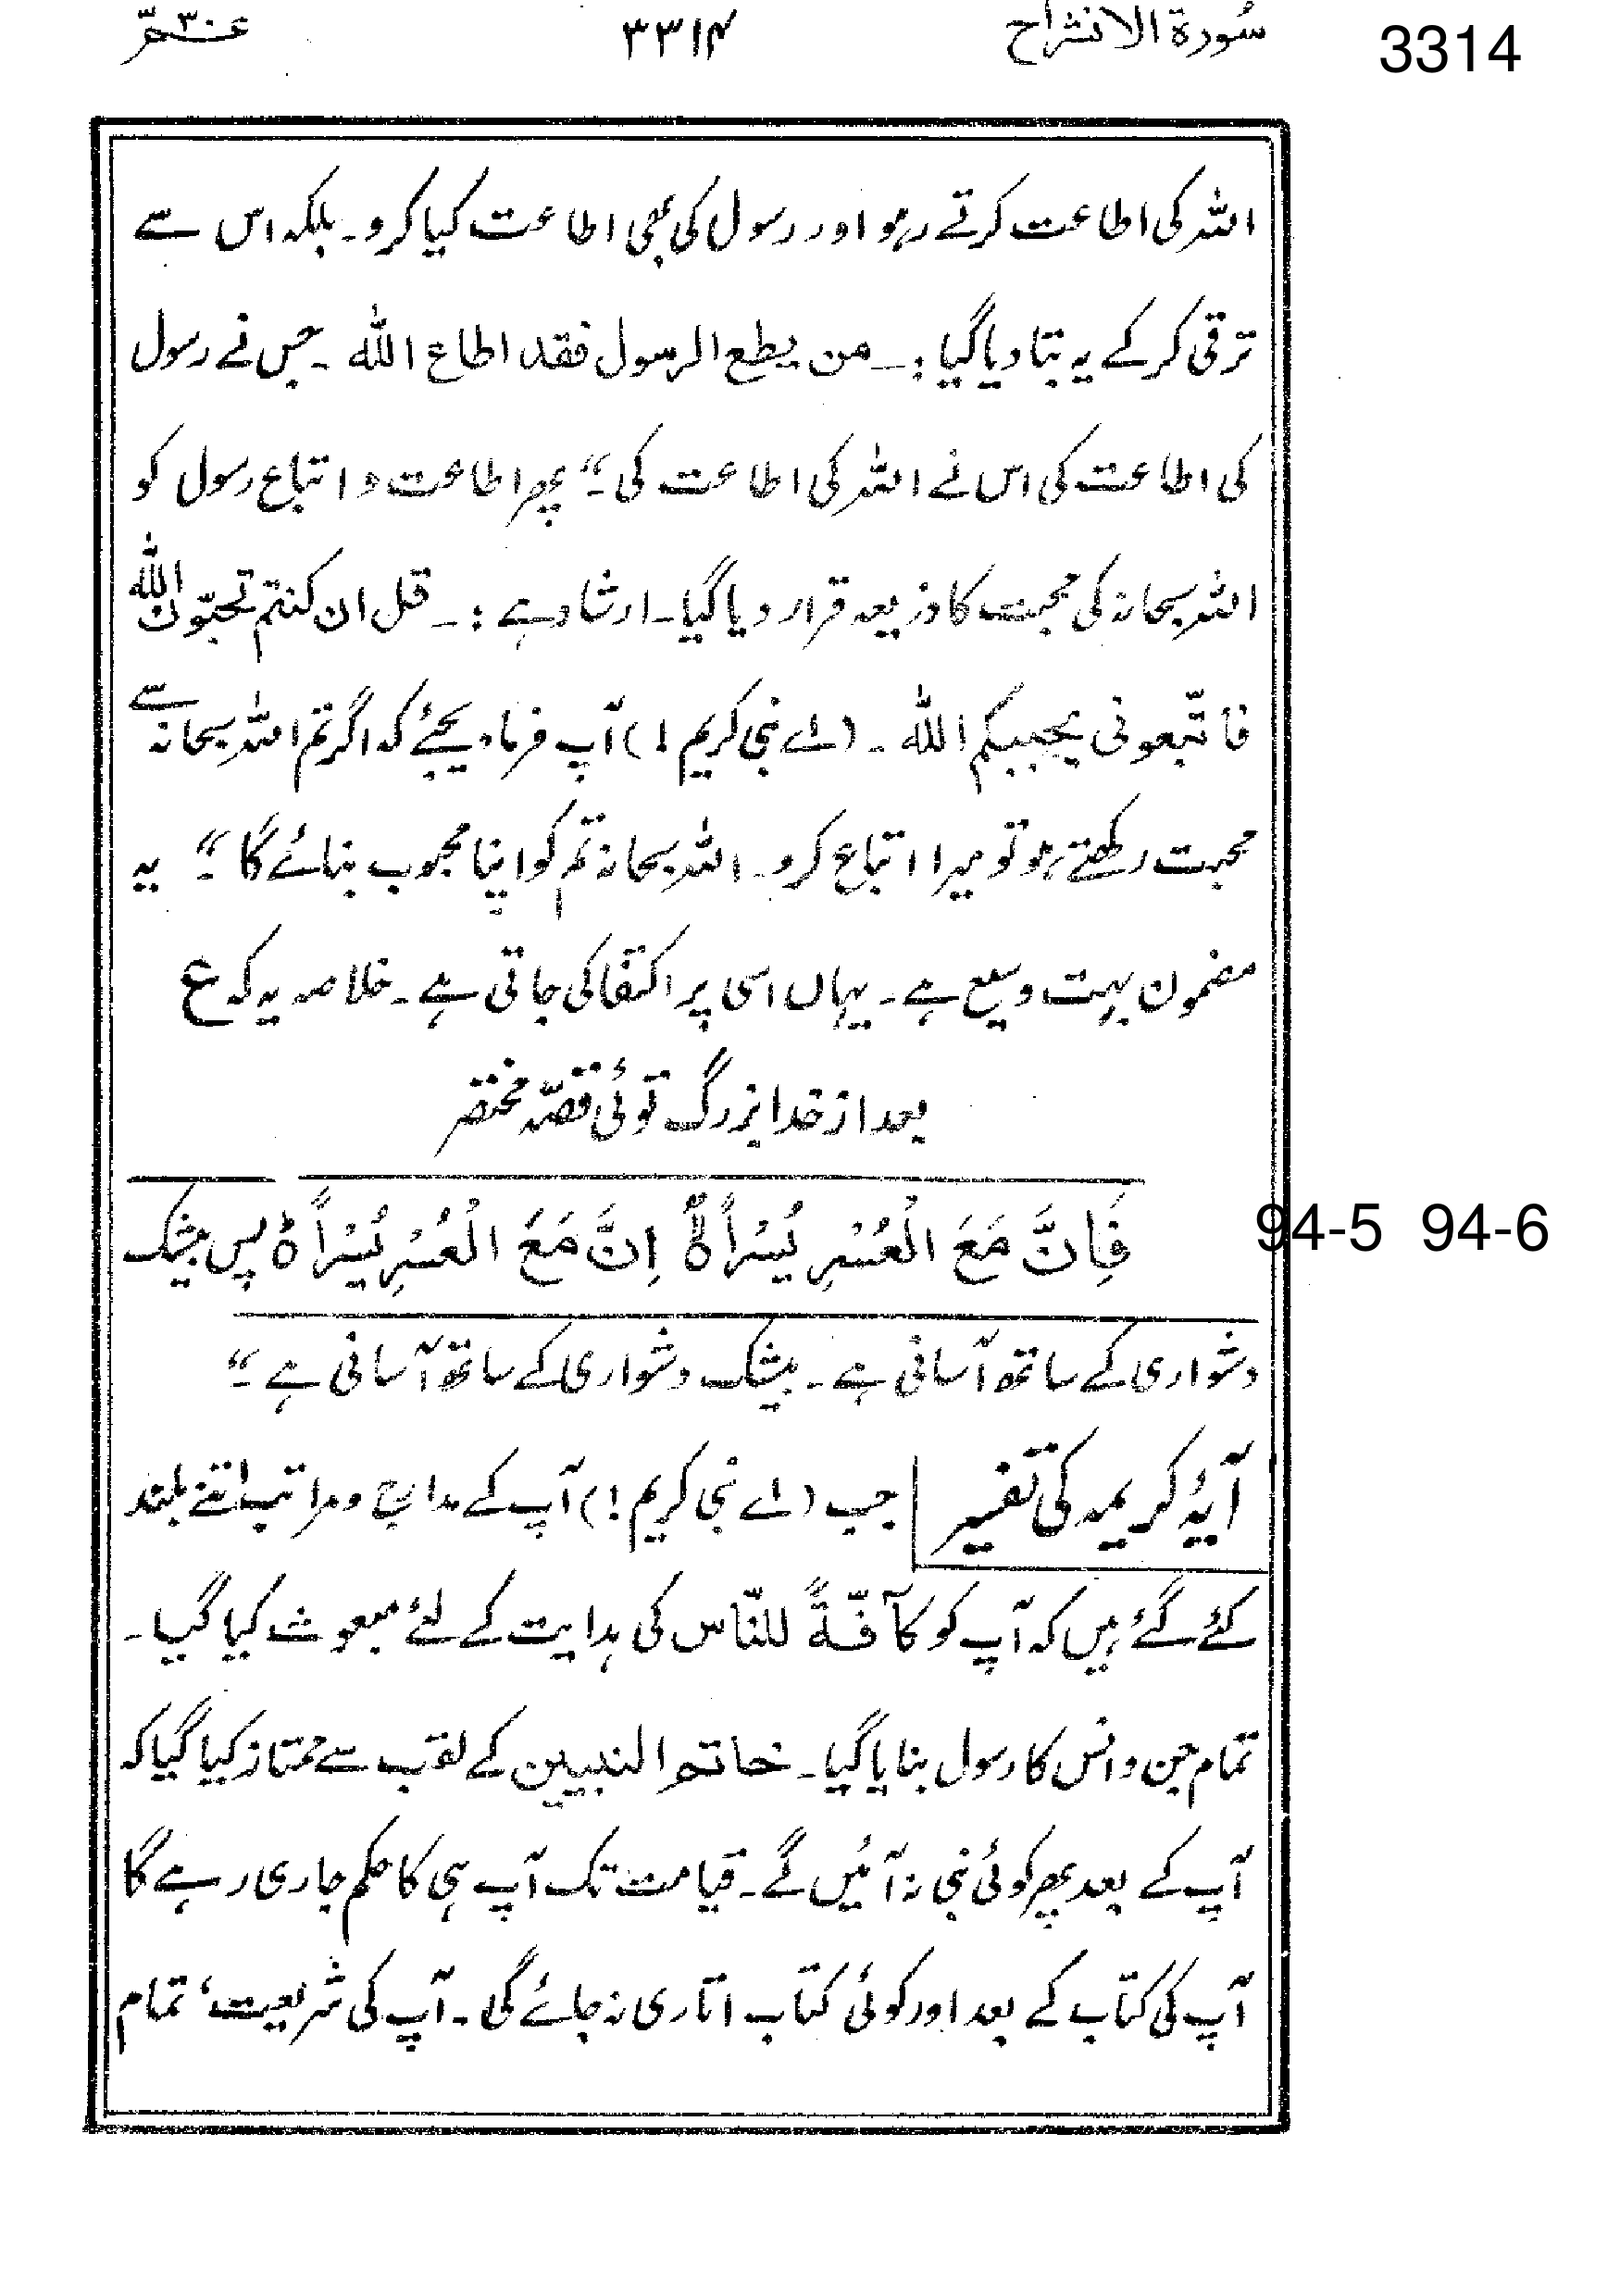 سُورۃ الانشراح ۳۳۱۴ عـــمّ ۳۰ 3314
اللہ کی اطاعت کرتے رہو اور رسول کی بھی اطاعت کیا کرو۔ بلکہ اس سے
ترقی کر کے یہ بتا دیا گیا :۔ من یطع الرسول فقد اطاع اللہ ۔ جس نے رسول
کی اطاعت کی اس نے اللہ کی اطاعت کی۔“ پھر اطاعت و اتباع رسول کو
اللہ سبحانہ کی محبت کا ذریعہ قرار دیا گیا۔ ارشاد ہے :۔ قل ان کنتم تحبّون اللہ
فاتّبعونی یحببکم اللہ ۔ (اے نبی کریم !) آپ فرما دیجئے کہ اگر تم اللہ سبحانہ سے
محبت رکھتے ہو تو میرا اتباع کرو۔ اللہ سبحانہ تم کو اپنا محبوب بنائے گا۔“ یہ
مضمون بہت وسیع ہے۔ یہاں اسی پر اکتفا کی جاتی ہے۔ خلاصہ یہ کہ ع
بعد از خدا بزرگ توئی قصّہ مختصر
فَاِنَّ مَعَ الْعُسْرِ یُسْراًۙ۵ اِنَّ مَعَ الْعُسْرِ یُسْراًؕ۵ پس بیشک 94-5 94-6
دشواری کے ساتھ آسانی ہے۔ بیشک دشواری کے ساتھ آسانی ہے۔“
آیۂ کریمہ کی تفسیر جب (اے نبی کریم !) آپ کے مدارج و مراتب اتنے بلند
کئے گئے ہیں کہ آپ کو کآفّۃً للنّاس کی ہدایت کے لئے مبعوث کیا گیا۔
تمام جن و انس کا رسول بنایا گیا۔ خاتم النبیین کے لقب سے ممتاز کیا گیا کہ
آپ کے بعد پھر کوئی نبی نہ آئیں گے۔ قیامت تک آپ ہی کا حکم جاری رہے گا
آپ کی کتاب کے بعد اور کوئی کتاب اتاری نہ جائے گی۔ آپ کی شریعت، تمام